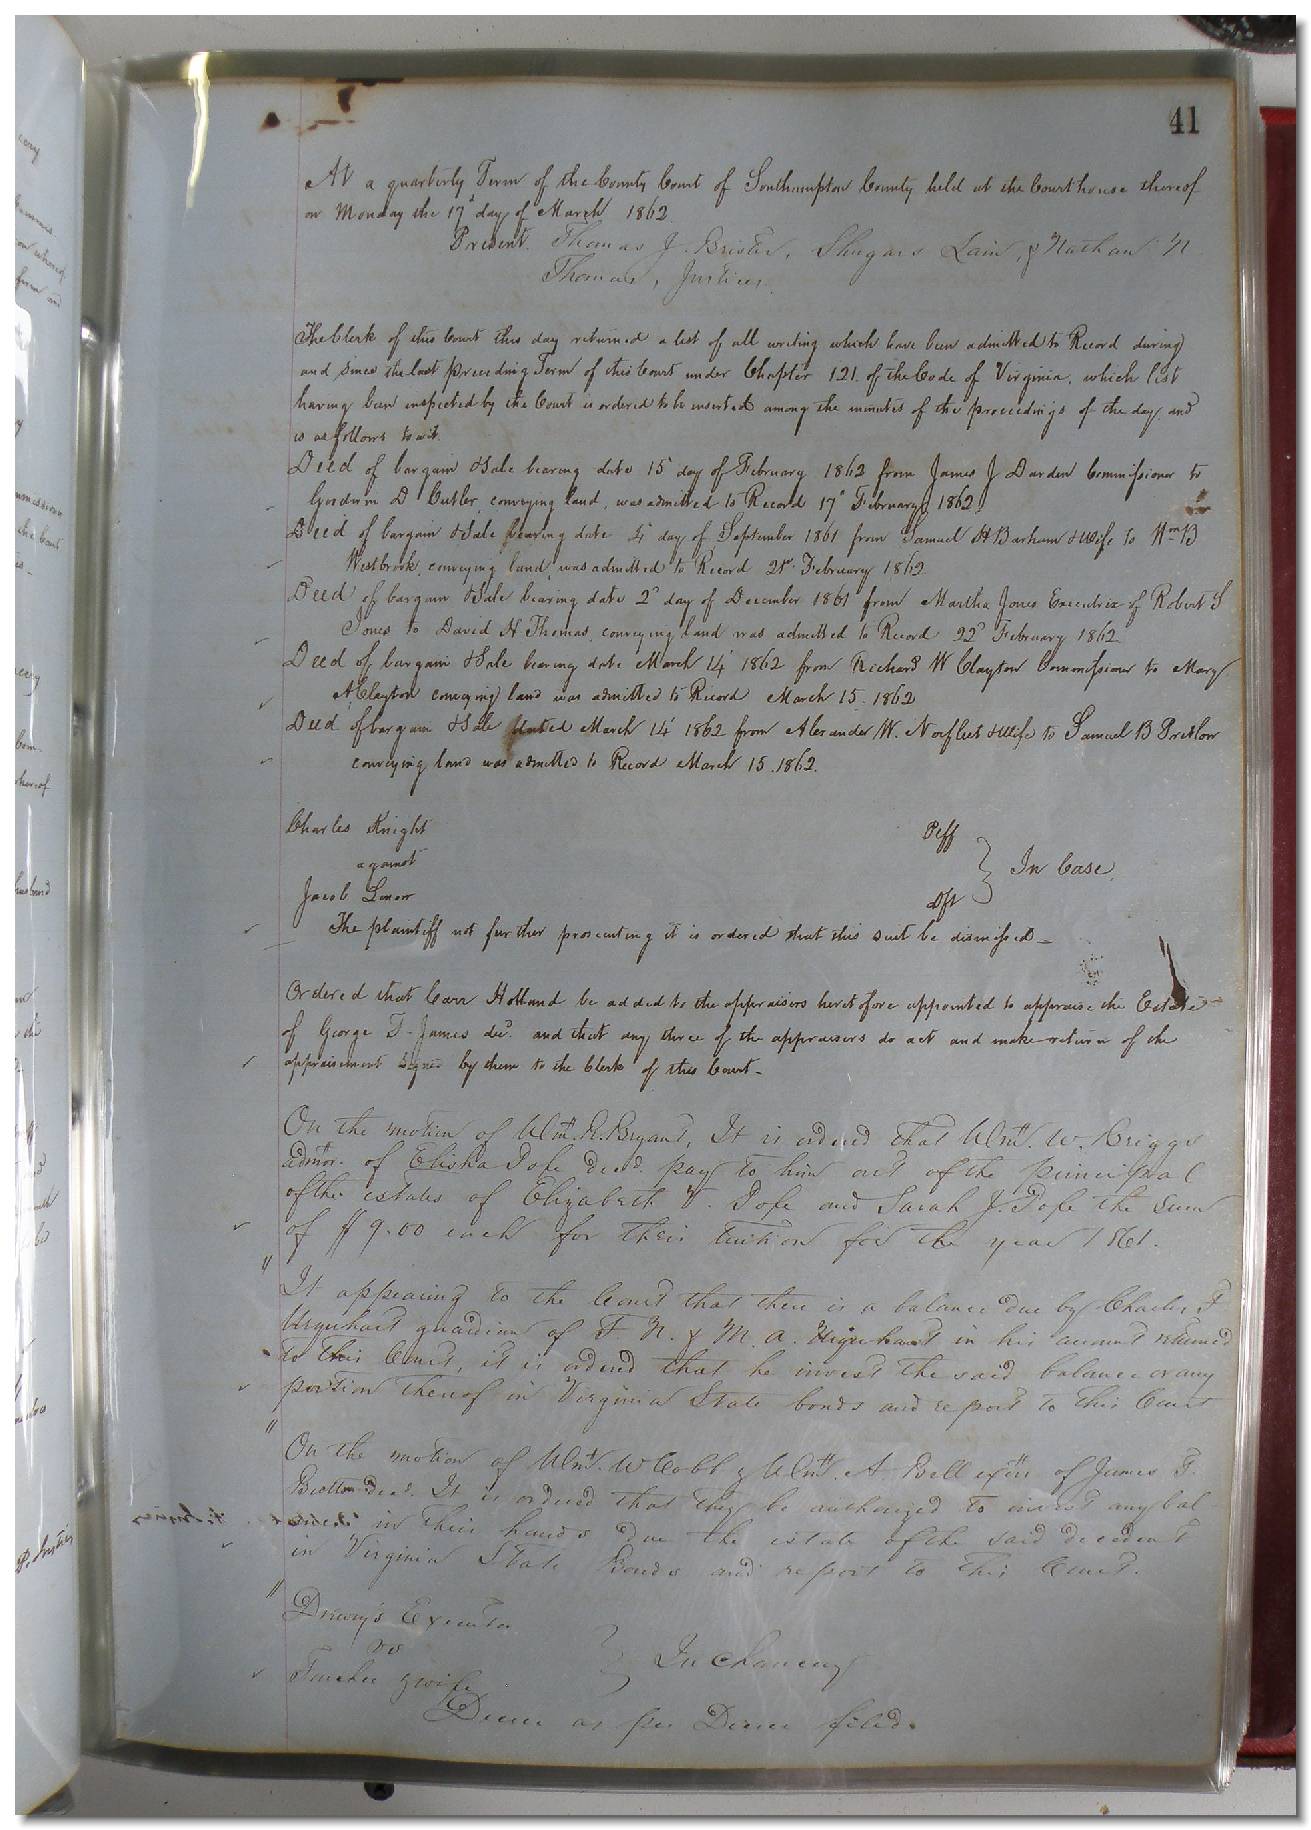 41
At a quarterly Term of the County Court of Southampton County held at the Courthouse thereof
on Monday the 17th day of March 1862
Present. Thomas J. Brister, Shugars Lain, & Nathan N
Thomas, Justices.
The Clerk of this Court this day returned a list of all writing which have been admitted to Record during
and since the last preceeding Term of this Court under Chapter 121. of the Code of Virginia, which list
having been inspected by the Court is ordered to be inserted among the minutes of the proceedings of the day, and
is as follows to wit.
Deed of bargain & Sale bearing date 15 day of February 1862 from James J Darden Commissioner to
Goodwin D Cutler, conveying land, was admitted to Record 17th February 1862
Deed of bargain & Sale bearing date 4 day of September 1861 from Samuel H Barham & Wife to Wm B
Westbrook, conveying land, was admitted to Record 21st February 1862
Deed of bargain & Sale bearing date 2d day of December 1861 from Martha Jones Executrix of Robert S
Jones to David H Thomas, conveying land was admitted to Record 22d February 1862
Deed of bargain & Sale bearing date March 14 1862 from Richard W Clayton Commissioner to Mary
A Clayton conveying land was admitted to Record March 15. 1862
Deed of bargain & Sale dated March 14 1862 from Alexander W. Norfleet & Wife to Samuel B Pretlow
conveying land was admitted to Record March 15. 1862.
Charles Knight Plff
against In Case.
Jacob Dft
The plaintiff not further prosecuting it is ordered that this suit be dismissed
Ordered that Carr Holland be added to the appraisers heretofore appointed to appraise the Estate
of George T James decd. and that any three of the appraisers do act and make return of the
appraisement signed by them to the Clerk of this Court
On the motion of Wm. R. Bryant, It is ordered that Wm. W. Briggs
admor. of Elisha Pope decd. pay to him out of the principal
of the estates of Elizabeth V. Pope and Sarah J. Pope the Sum
of $9.00 each for their tuition for the year 1861.
It appearing to the Court that there is a balance due by Charles F
Urquhart guardian of F N. & M. A. Urquhart in his account returned
to this Court, it is ordered that he invest the said balance or any
portion thereof in Virginia State bonds and report to this Court
On the motion of Wm. W Cobb & Wm. A. Bell exors of James F.
Bretton decd. It is ordered that they be authorized to invest any bal
in their hands due the estate of the said decedent
in Virginia State Bonds and report to this Court.
Drewry's Executor
vs In Chancery
& wife
Decree as per Decree filed.